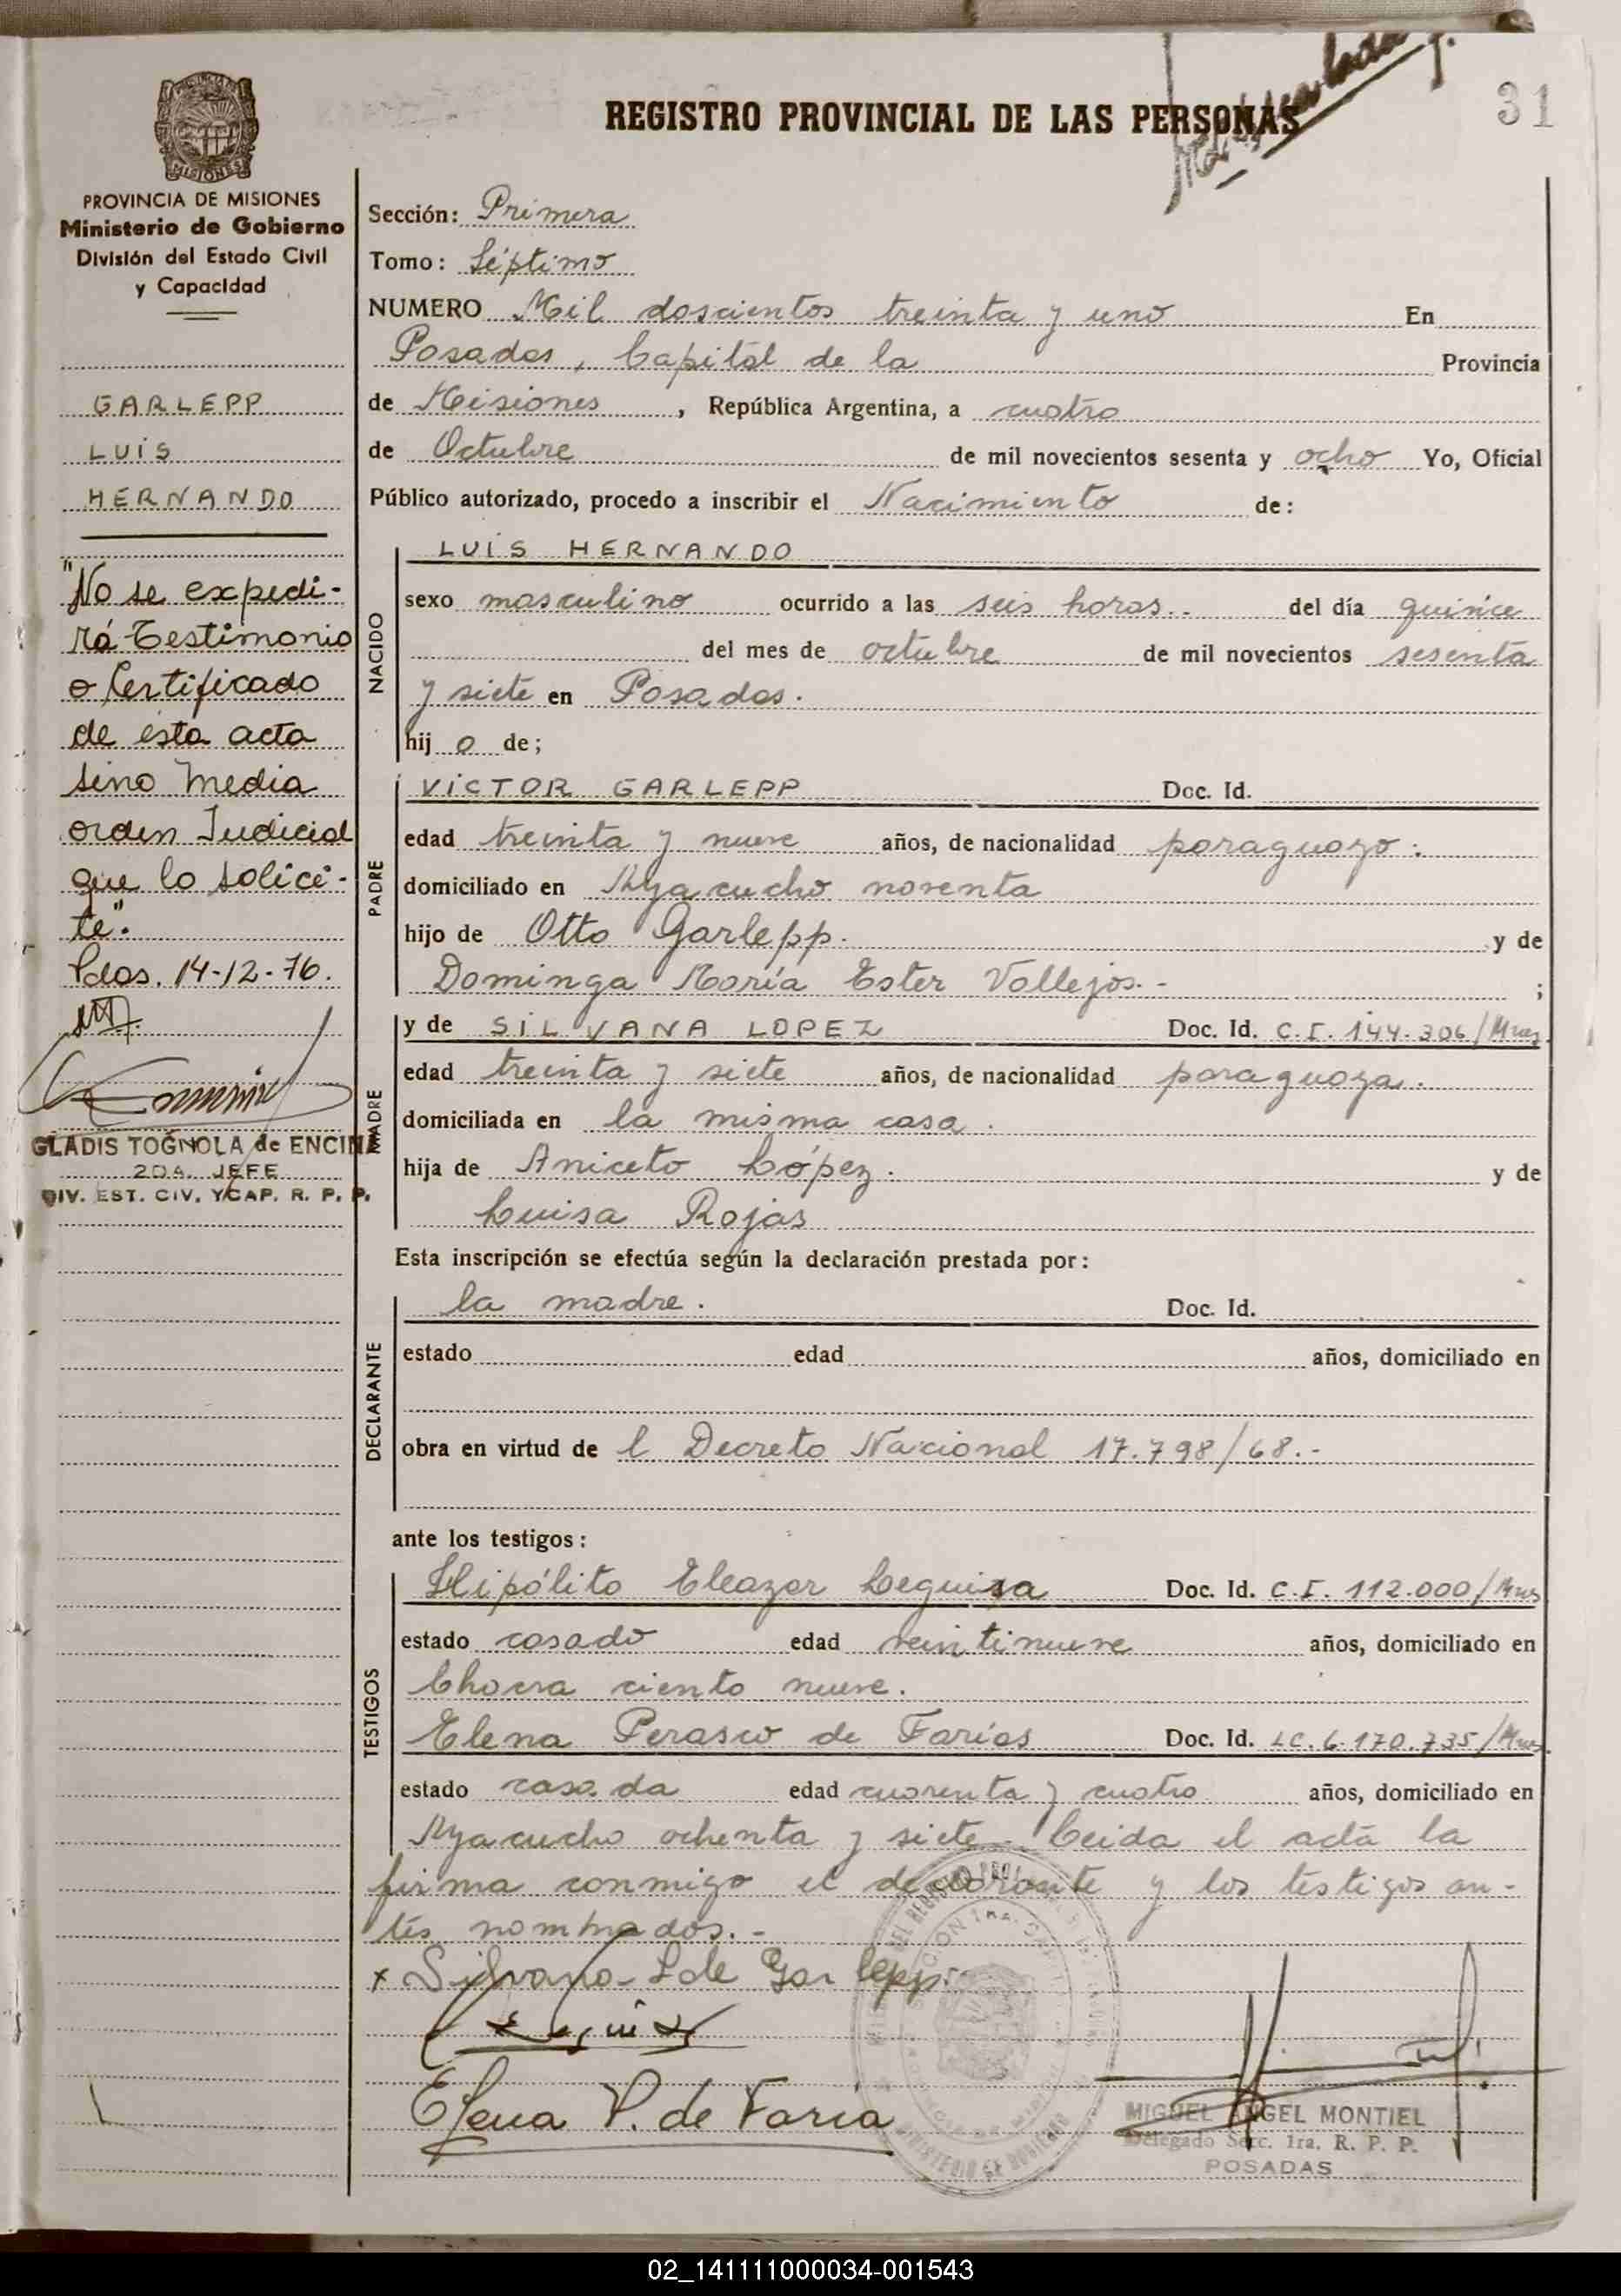 31
REGISTRO PROVINCIAL DE LAS PERSONAS
PROVINCIA DE MISIONES
Ministerio de Gobierno
División del Estado Civil
y Capacidad
GARLEPP
LUIS
HERNANDO
"No se expedi-
rá Testimonio
o Certificado
de esta acta
sino media
orden Judicial
que lo solici-
te".
Pdas. 14-12-76.
GLADIS TOGNOLA de ENCINA
2DA. JEFE
DIV. EST. CIV. Y CAP. R. P. P.
Sección: Primera
Tomo: Séptimo
NUMERO Mil doscientos treinta y uno En
Posadas, Capital de la Provincia
de Misiones, República Argentina, a cuatro
de Octubre de mil novecientos sesenta y ocho Yo, Oficial
Público autorizado, procedo a inscribir el Nacimiento de:
NACIDO
LUIS HERNANDO
sexo masculino ocurrido a las seis horas.- del día quince
del mes de octubre de mil novecientos sesenta
y siete en Posadas.
hij o de;
PADRE
VICTOR GARLEPP Doc. Id.
edad treinta y nueve años, de nacionalidad paraguayo.
domiciliado en Ayacucho noventa
hijo de Otto Garlepp. y de
Dominga María Ester Vallejos.- ;
MADRE
y de SILVANA LOPEZ Doc. Id. C.I. 144.306/Mnes
edad treinta y siete años, de nacionalidad paraguaya.
domiciliada en la misma casa.
hija de Aniceto López. y de
Luisa Rojas
Esta inscripción se efectúa según la declaración prestada por:
DECLARANTE
la madre. Doc. Id.
estado edad años, domiciliado en
obra en virtud de l Decreto Nacional 17.798/68.-
ante los testigos:
TESTIGOS
Hipólito Eleazar Leguisa Doc. Id. C.I. 112.000/Mnes
estado casado edad veintinueve años, domiciliado en
Chacra ciento nueve.
Elena Perasco de Farías Doc. Id. LC. 6.170.735/Mnes.
estado casada edad cuarenta y cuatro años, domiciliado en
Ayacucho ochenta y siete. Leida el acta la
firma conmigo el declarante y los testigos an-
tes nombrados.-
x Silvana L de Garlepp
Elena P. de Faria
MIGUEL ANGEL MONTIEL
Delegado Secc. 1ra. R. P. P.
POSADAS
02_141111000034-001543